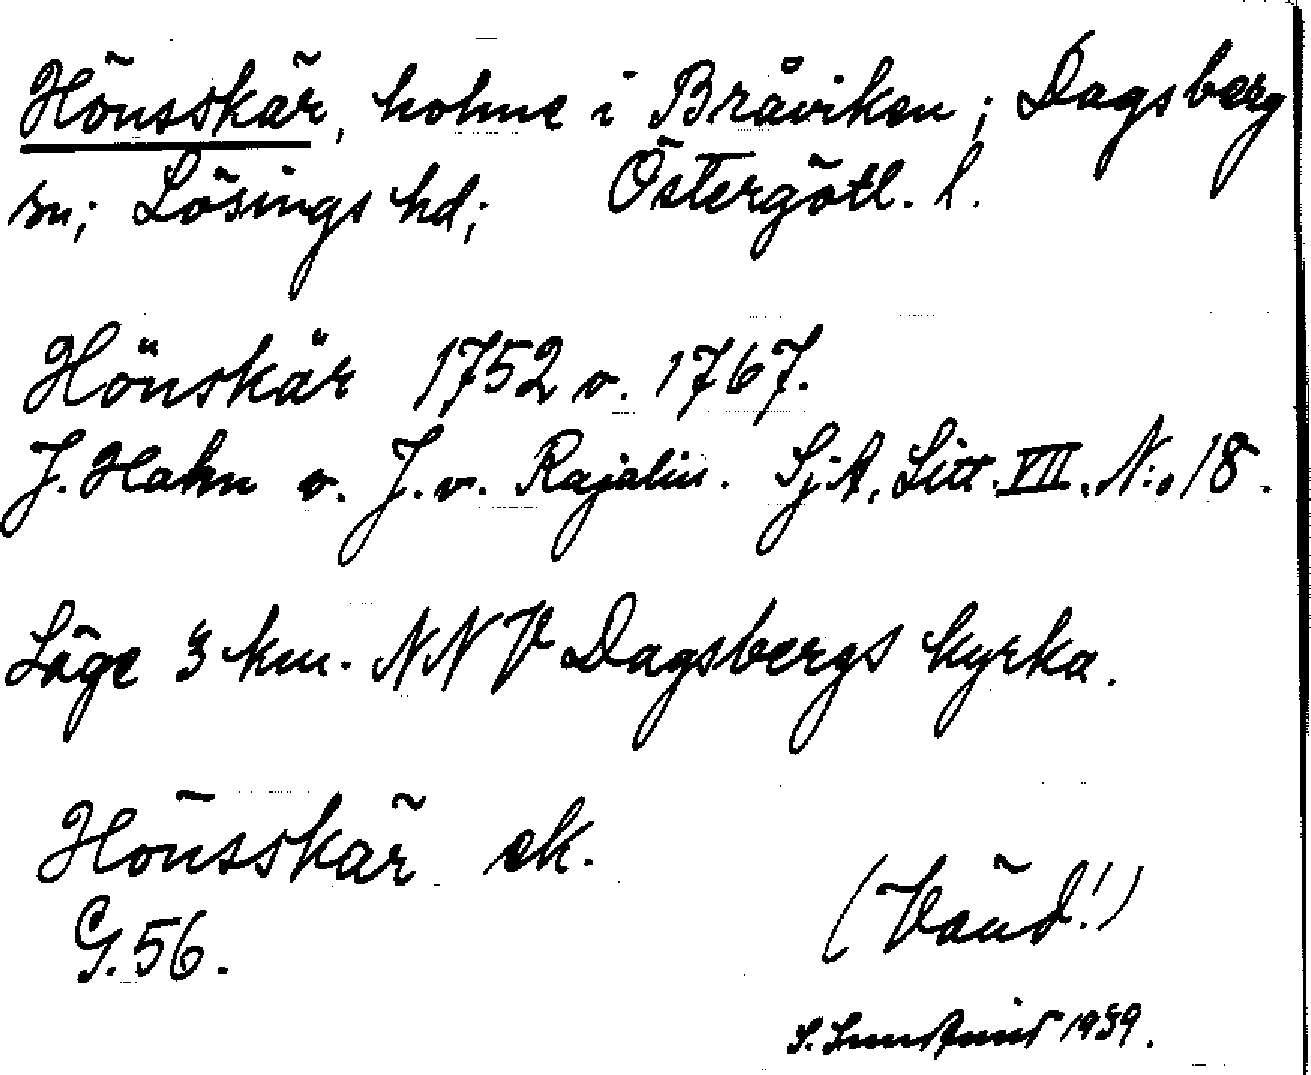 Hönsskär, holme i Bråviken; Dagsberg
sn; Lösings hd; Östergötl. l.
Hönskär 1752 o. 1767.
J. Hahn o. J. v. Rajalin. Sj.A. Litt. VII. N:o 18.
Läge 3 km. NNV Dagsbergs kyrka.
Hönsskär ek.
G. 56.
(Vänd!)
S. 1939.